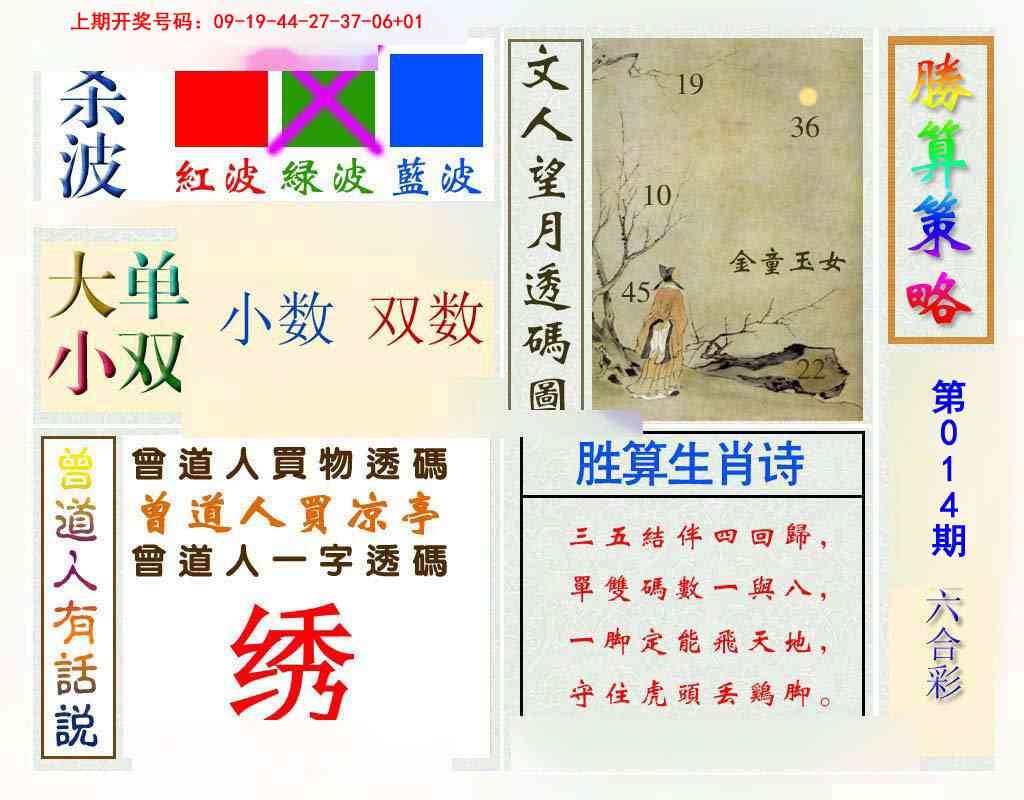 上期开奖号码：09-19-44-27-37-06+01
杀波
紅波 緑波 藍波
大单
小双
小数 双数
文人望月透碼圖
19
36
10
金童玉女
45
22
勝算策略
第014期
六合彩
曾道人有話説
曾道人買物透碼
曾道人買凉亭
曾道人一字透碼
绣
胜算生肖诗
三五結伴四回歸，
單雙碼數一與八，
一脚定能飛天地，
守住虎頭丢鷄脚。